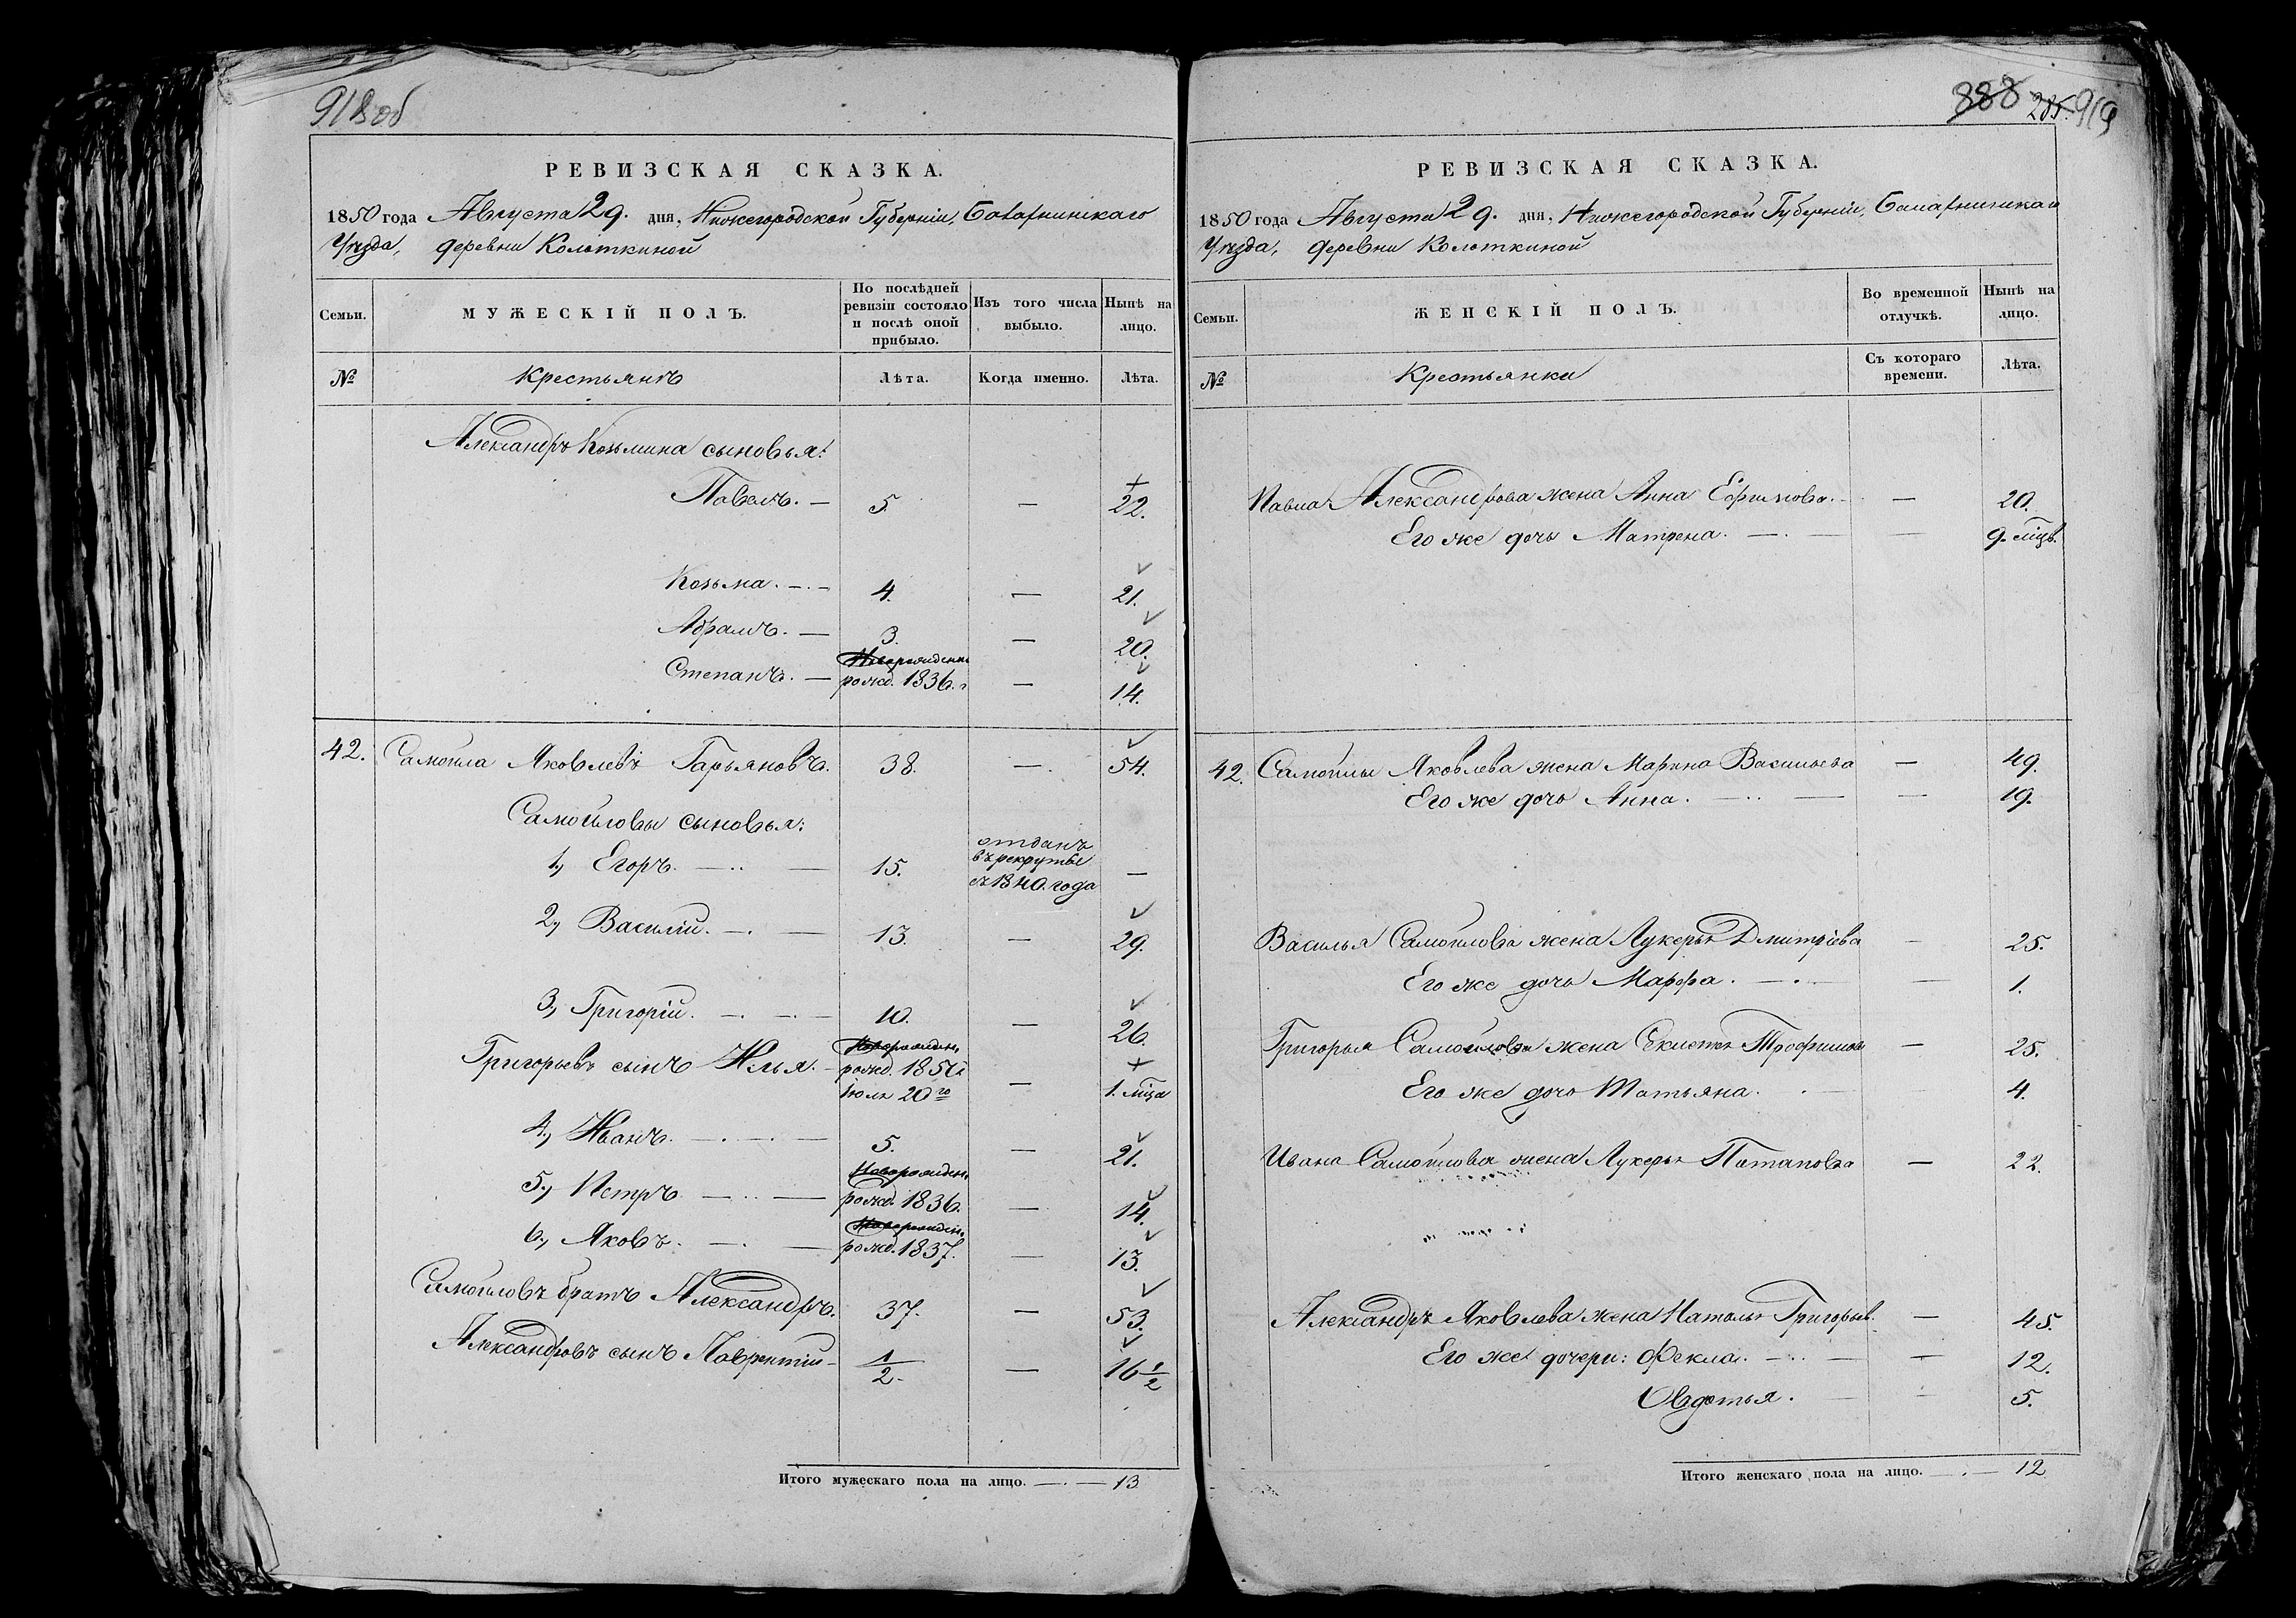 918об
РЕВИЗСКАЯ СКАЗКА.
1850 года Августа 29. дня, Нижегородской Губерніи, Балахнинскаго
Уѣзда, деревни Колоткиной
Семьи.
МУЖЕСКІЙ ПОЛЪ.
По послѣдней ревизіи состояло и послѣ оной прибыло.
Изъ того числа выбыло.
Нынѣ на лицо.
№ Крестьянъ Лѣта. Когда именно. Лѣта.
Александръ Козьмина сыновья:
Павелъ. — 5. — + 22.
Козьма. — 4. — 21.
Абрамъ. — 3. — 20.
Новорожденн
Степанъ. — рожд. 1836. г — 14.
42. Самойла Яковлевъ Гарьяновъ. 38. — 54.
Самойловы сыновья:
1, Егоръ. — 15. отданъ въ рекруты съ 1840. года —
2, Василій. — 13. — 29.
3, Григорій. — 10. — 26.
Григорьевъ сынъ Илья. — рожд. 1850 Іюля 20го — + 1. мѣца
4, Иванъ. — 5. — 21.
Новорожден.
5, Петръ — рожд. 1836. — 14.
Новорожден.
6, Яковъ. — рожд. 1837. — 13.
Самойловъ братъ Александръ. 37. — 53.
Александровъ сынъ Лаврентій — 1/2. — 16 1/2
Итого мужескаго пола на лицо. — 13
888 285. 919
РЕВИЗСКАЯ СКАЗКА.
1850 года Августа 29. дня, Нижегородской Губерніи, Балахнинскаго
Уѣзда, деревни Колоткиной
Семьи.
ЖЕНСКІЙ ПОЛЪ.
Во временной отлучкѣ.
Нынѣ на лицо.
№ Крестьянки Съ котораго времени. Лѣта.
Павла Александрова жена Анна Ефимова. — 20.
Его же дочь Матрена. — — 9. мцв.
42. Самойлы Яковлева жена Марина Васильева — 49.
Его же дочь Анна. — — 19.
Василья Самойлова жена Лукерья Дмитріева — 25.
Его же дочь Марфа. — — 1.
Григорья Самойлова жена Трофимова — 25.
Его же дочь Татьяна. — 4.
Ивана Самойлова жена Лукерья Потапова — 22.
Александръ Яковлева жена Наталья Григорьев. — 45.
Его же дочери: Фекла. — — 12.
Овдотья. — 5.
Итого женскаго пола на лицо. — 12